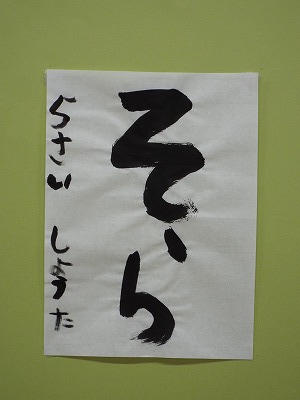 そら
らさい しょうた